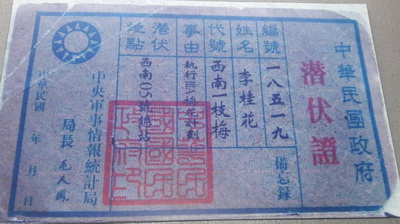 中華民國政府
潜伏證
編號 一八五一九
姓名 李桂花
代號 西南一枝梅
事由
潜伏地點 西南05號總站
備忘録
中央軍事情報統計局
局長 毛人鳳
中華民國 年 月 日